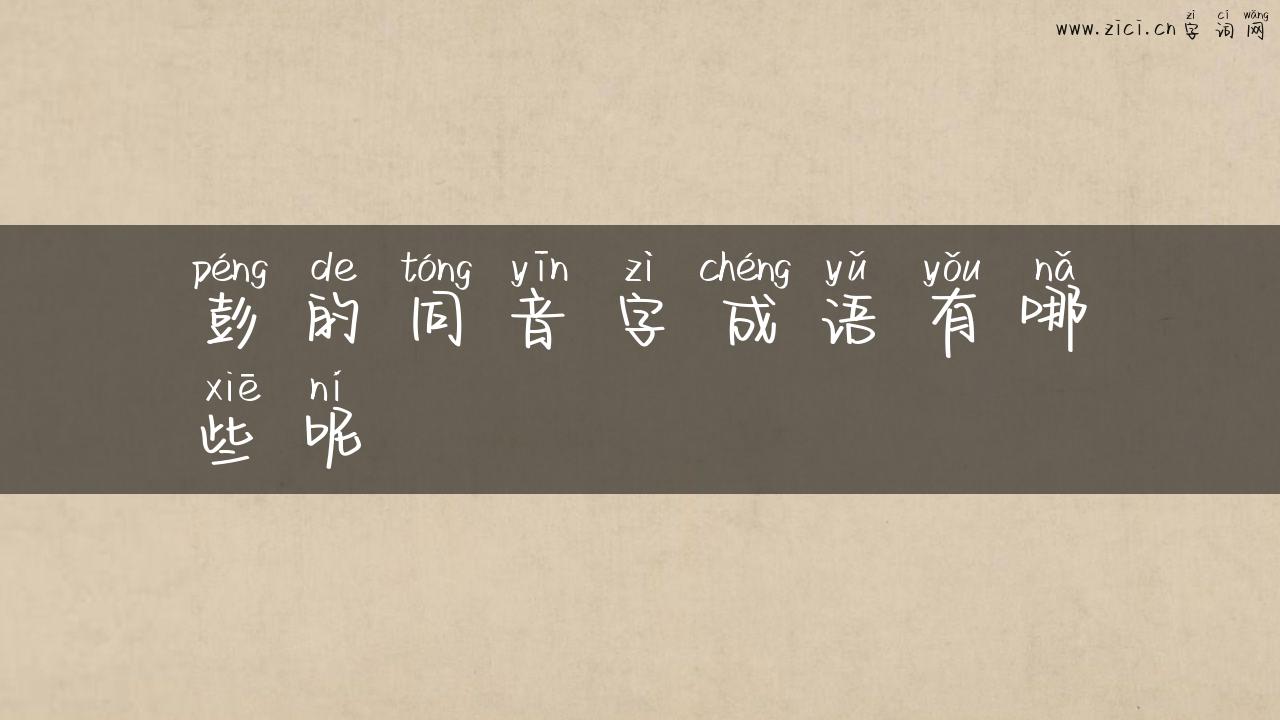 zì cí wǎng
www.zici.cn 字词网
péng de tóng yīn zì chéng yǔ yǒu nǎ
彭的同音字成语有哪
xiē ní
些呢